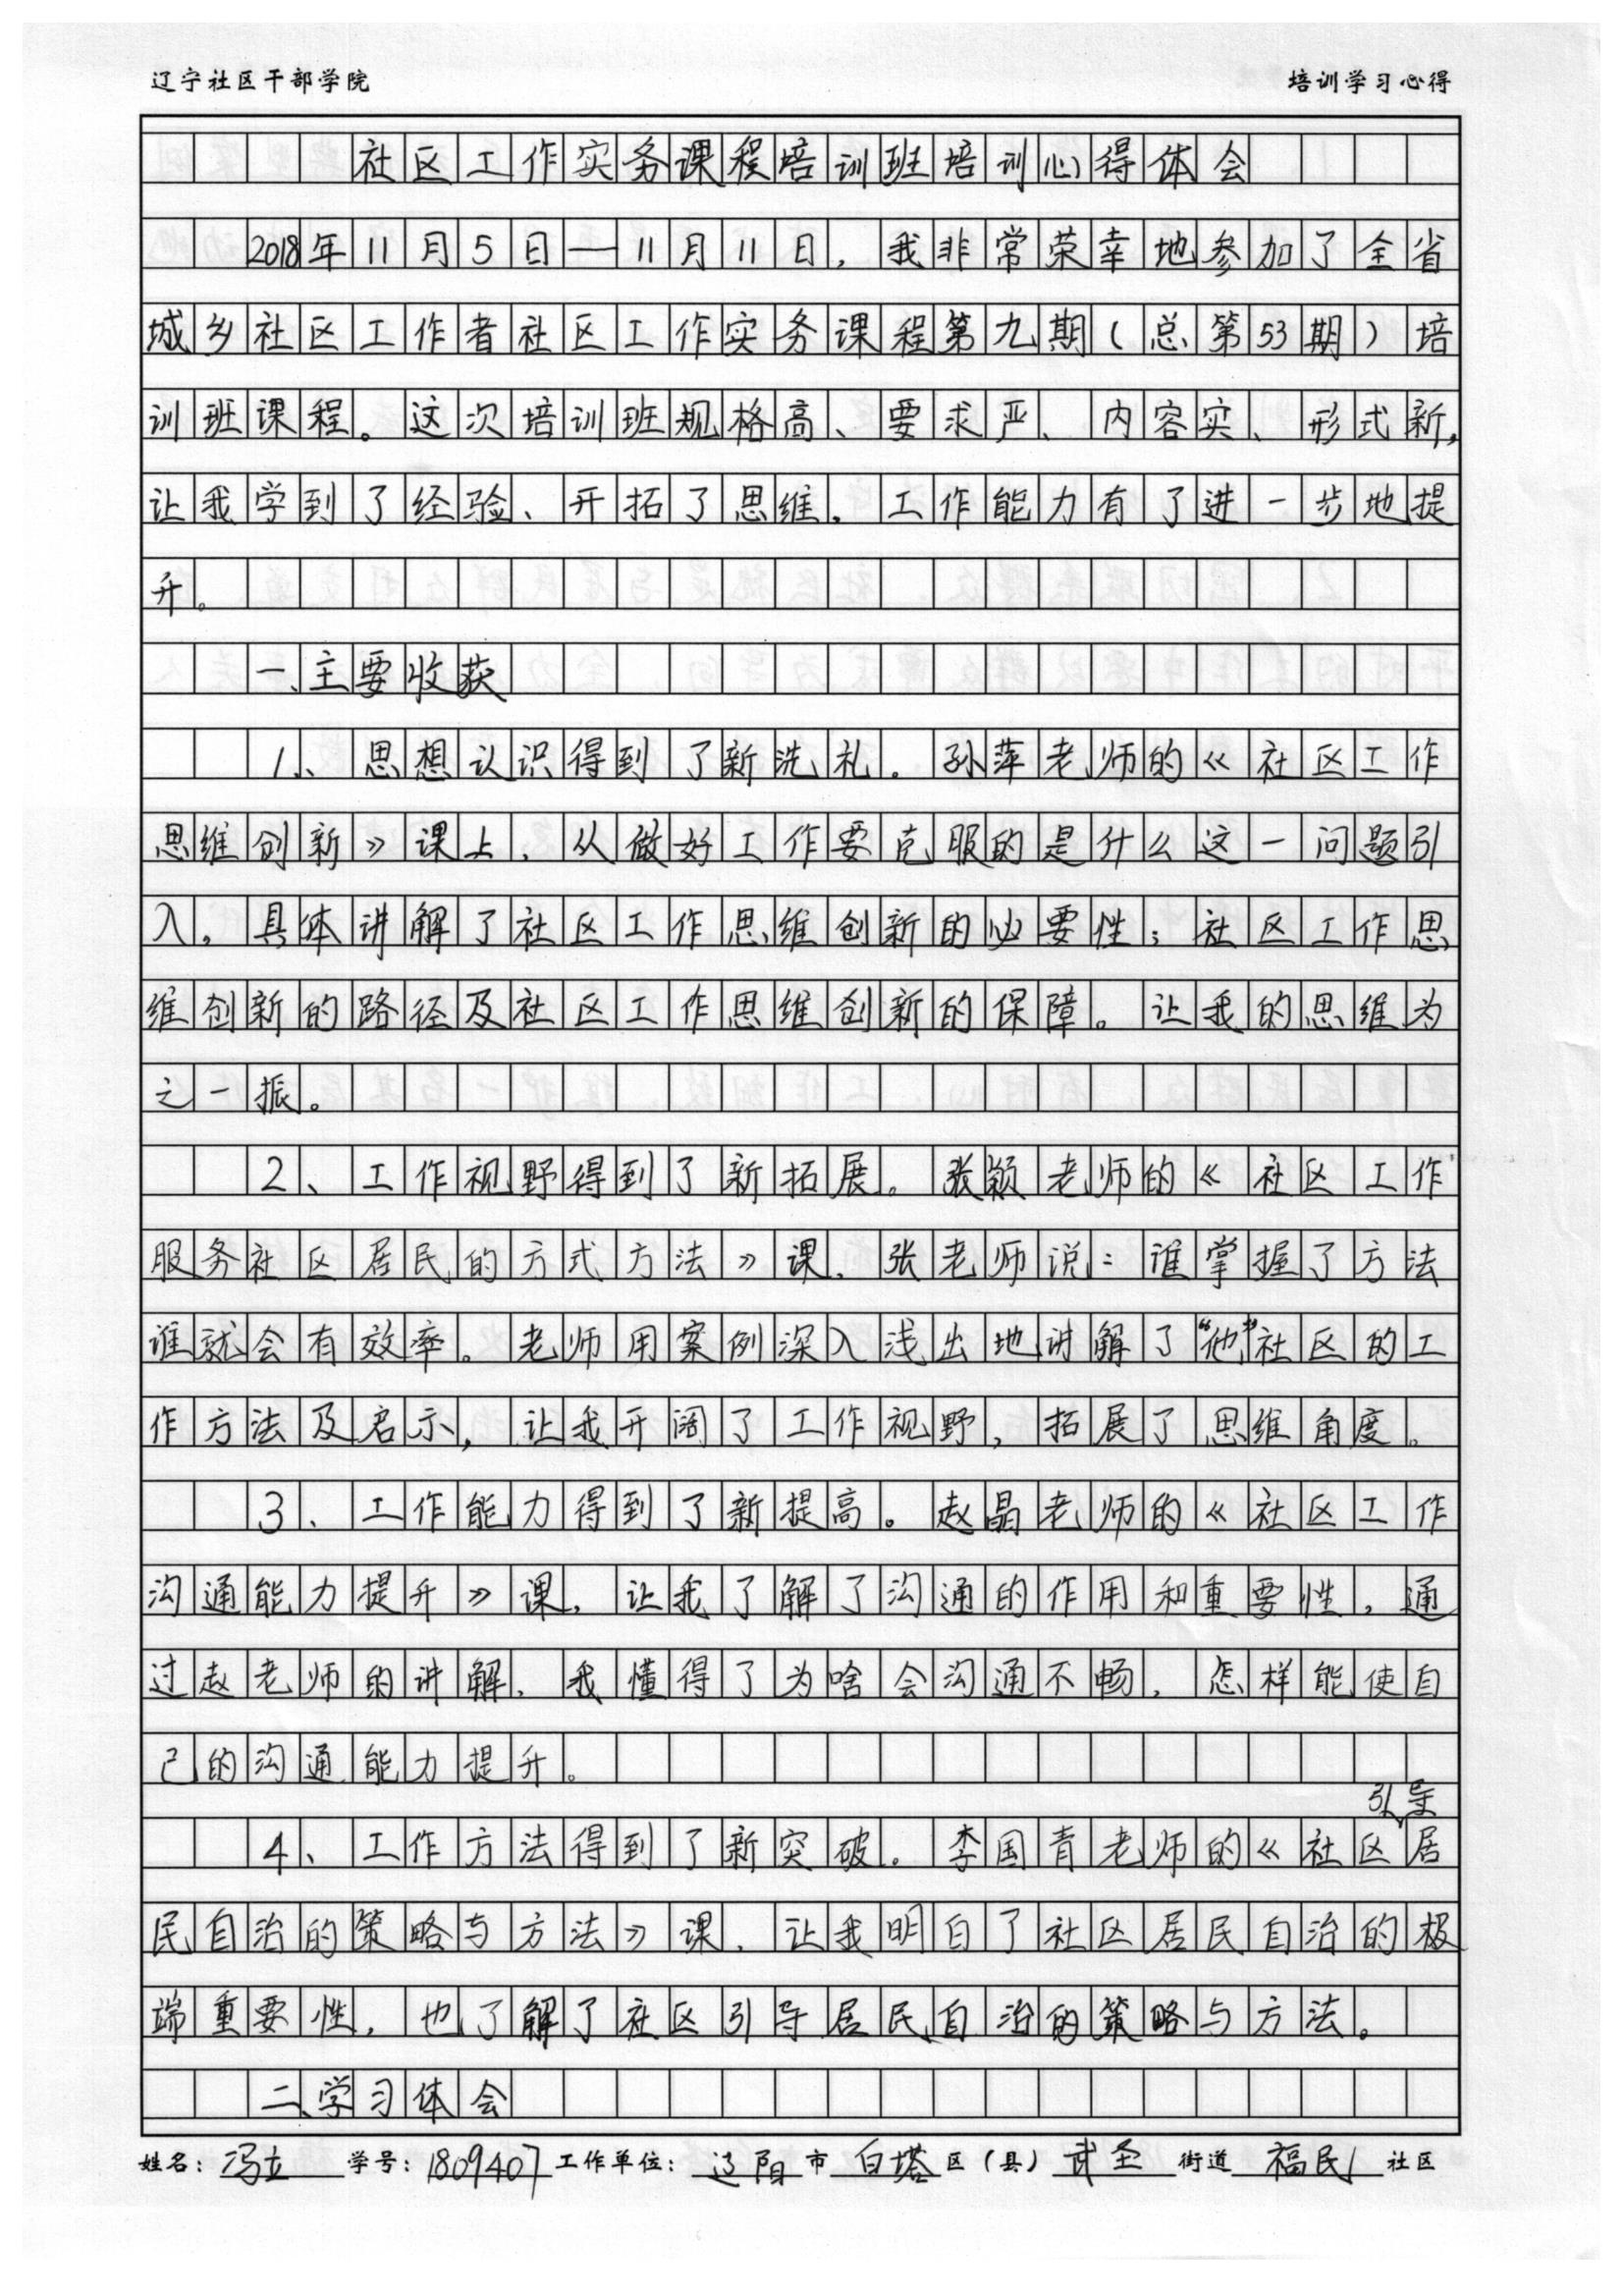 辽宁社区干部学院 培训学习心得
社区工作实务课程培训班培训心得体会
2018年11月5日—11月11日，我非常荣幸地参加了全省
城乡社区工作者社区工作实务课程第九期（总第53期）培
训班课程。这次培训班规格高、要求严、内容实、形式新，
让我学到了经验、开拓了思维，工作能力有了进一步地提
升。
一、主要收获
1、思想认识得到了新洗礼。孙萍老师的《社区工作
思维创新》课上，从做好工作要克服的是什么这一问题引
入，具体讲解了社区工作思维创新的必要性；社区工作思
维创新的路径及社区工作思维创新的保障。让我的思维为
之一振。
2、工作视野得到了新拓展。张颖老师的《社区工作
服务社区居民的方式方法》课，张老师说：谁掌握了方法
谁就会有效率。老师用案例深入浅出地讲解了“他”社区的工
作方法及启示，让我开阔了工作视野，拓展了思维角度。
3、工作能力得到了新提高。赵晶老师的《社区工作
沟通能力提升》课，让我了解了沟通的作用和重要性，通
过赵老师的讲解，我懂得了为啥会沟通不畅，怎样能使自
己的沟通能力提升。
4、工作方法得到了新突破。李国青老师的《社区引导居
民自治的策略与方法》课，让我明白了社区居民自治的极
端重要性，也了解了社区引导居民自治的策略与方法。
二、学习体会
姓名：冯立 学号：1809407 工作单位：辽阳市白塔区（县）武圣街道福民社区